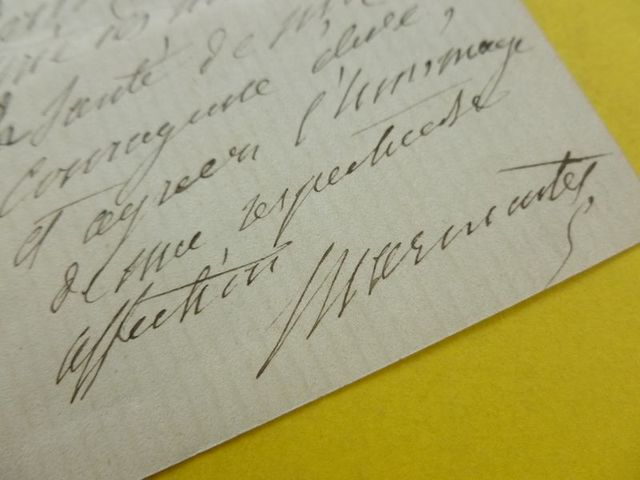 santé de
courageuse élève,
et agréer l'hommage
de ma respectueuse
affection Marmontel